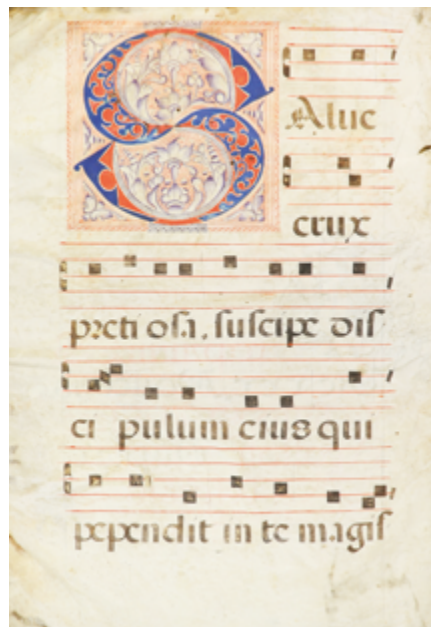 SAlue
crux
preti osa, suscipe dis
ci pulum eius qui
pependit in te magis